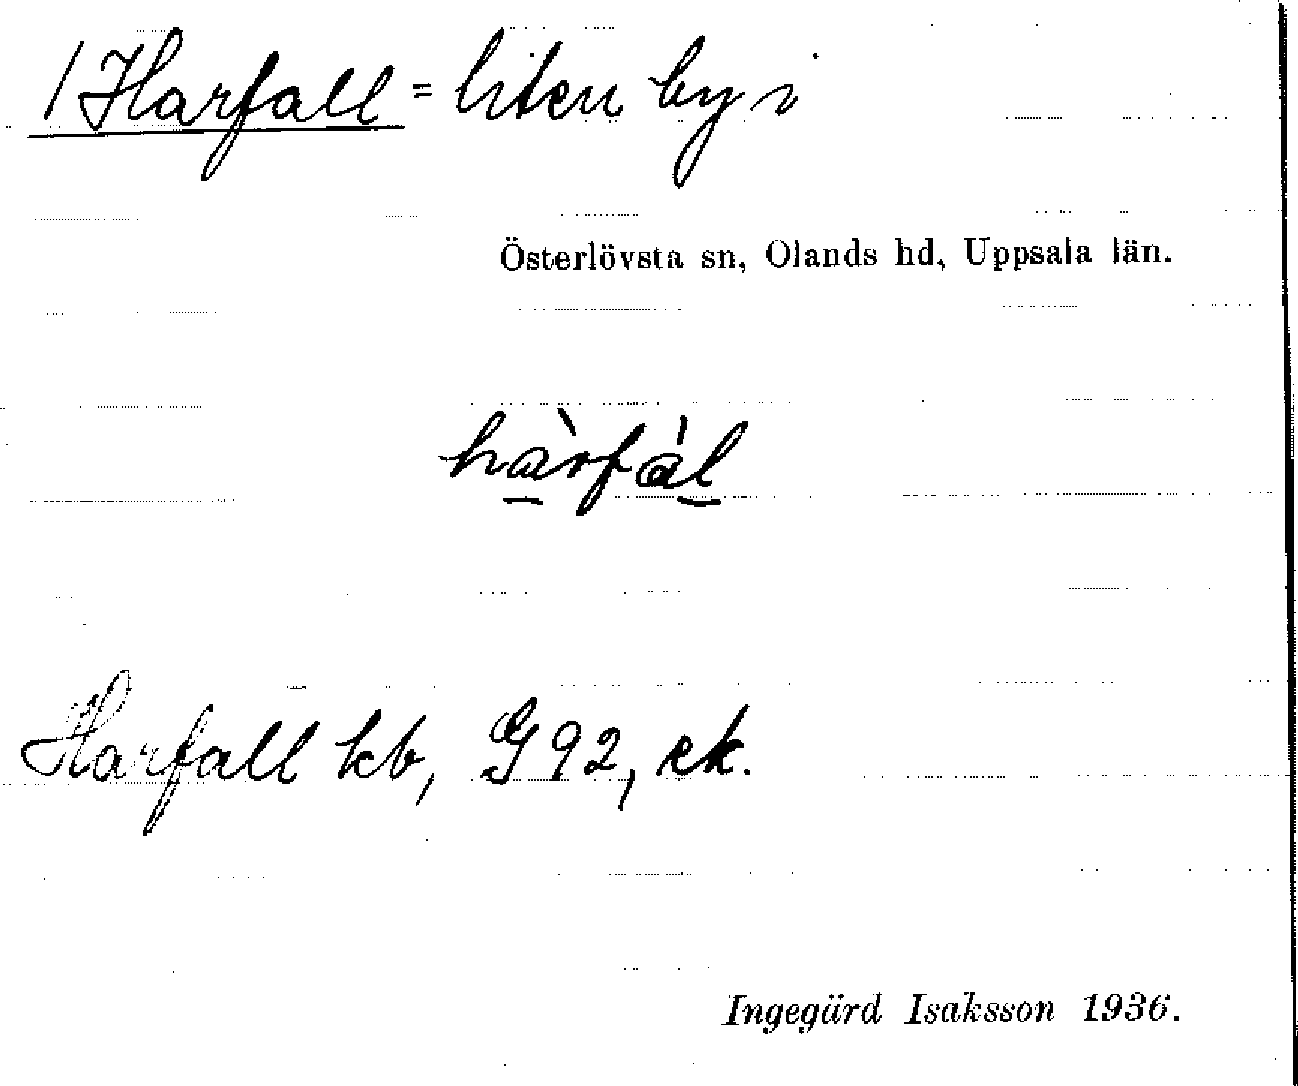 / Harfall = liten by i
Österlövsta sn, Olands hd, Uppsala län.
hàrfál
Harfall kb, G 92, ek.
Ingegärd Isaksson 1936.